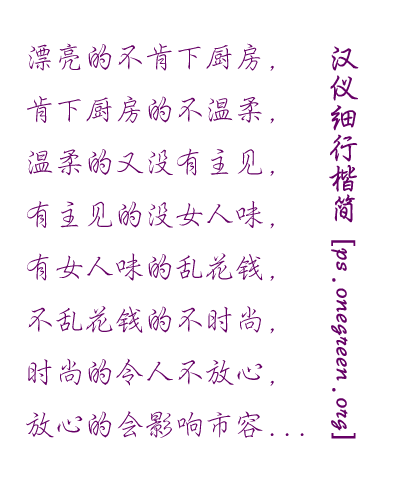 漂亮的不肯下厨房,
肯下厨房的不温柔,
温柔的又没有主见,
有主见的没女人味,
有女人味的乱花钱,
不乱花钱的不时尚,
时尚的令人不放心,
放心的会影响市容...
汉仪细行楷简 [ps.onegreen.org]